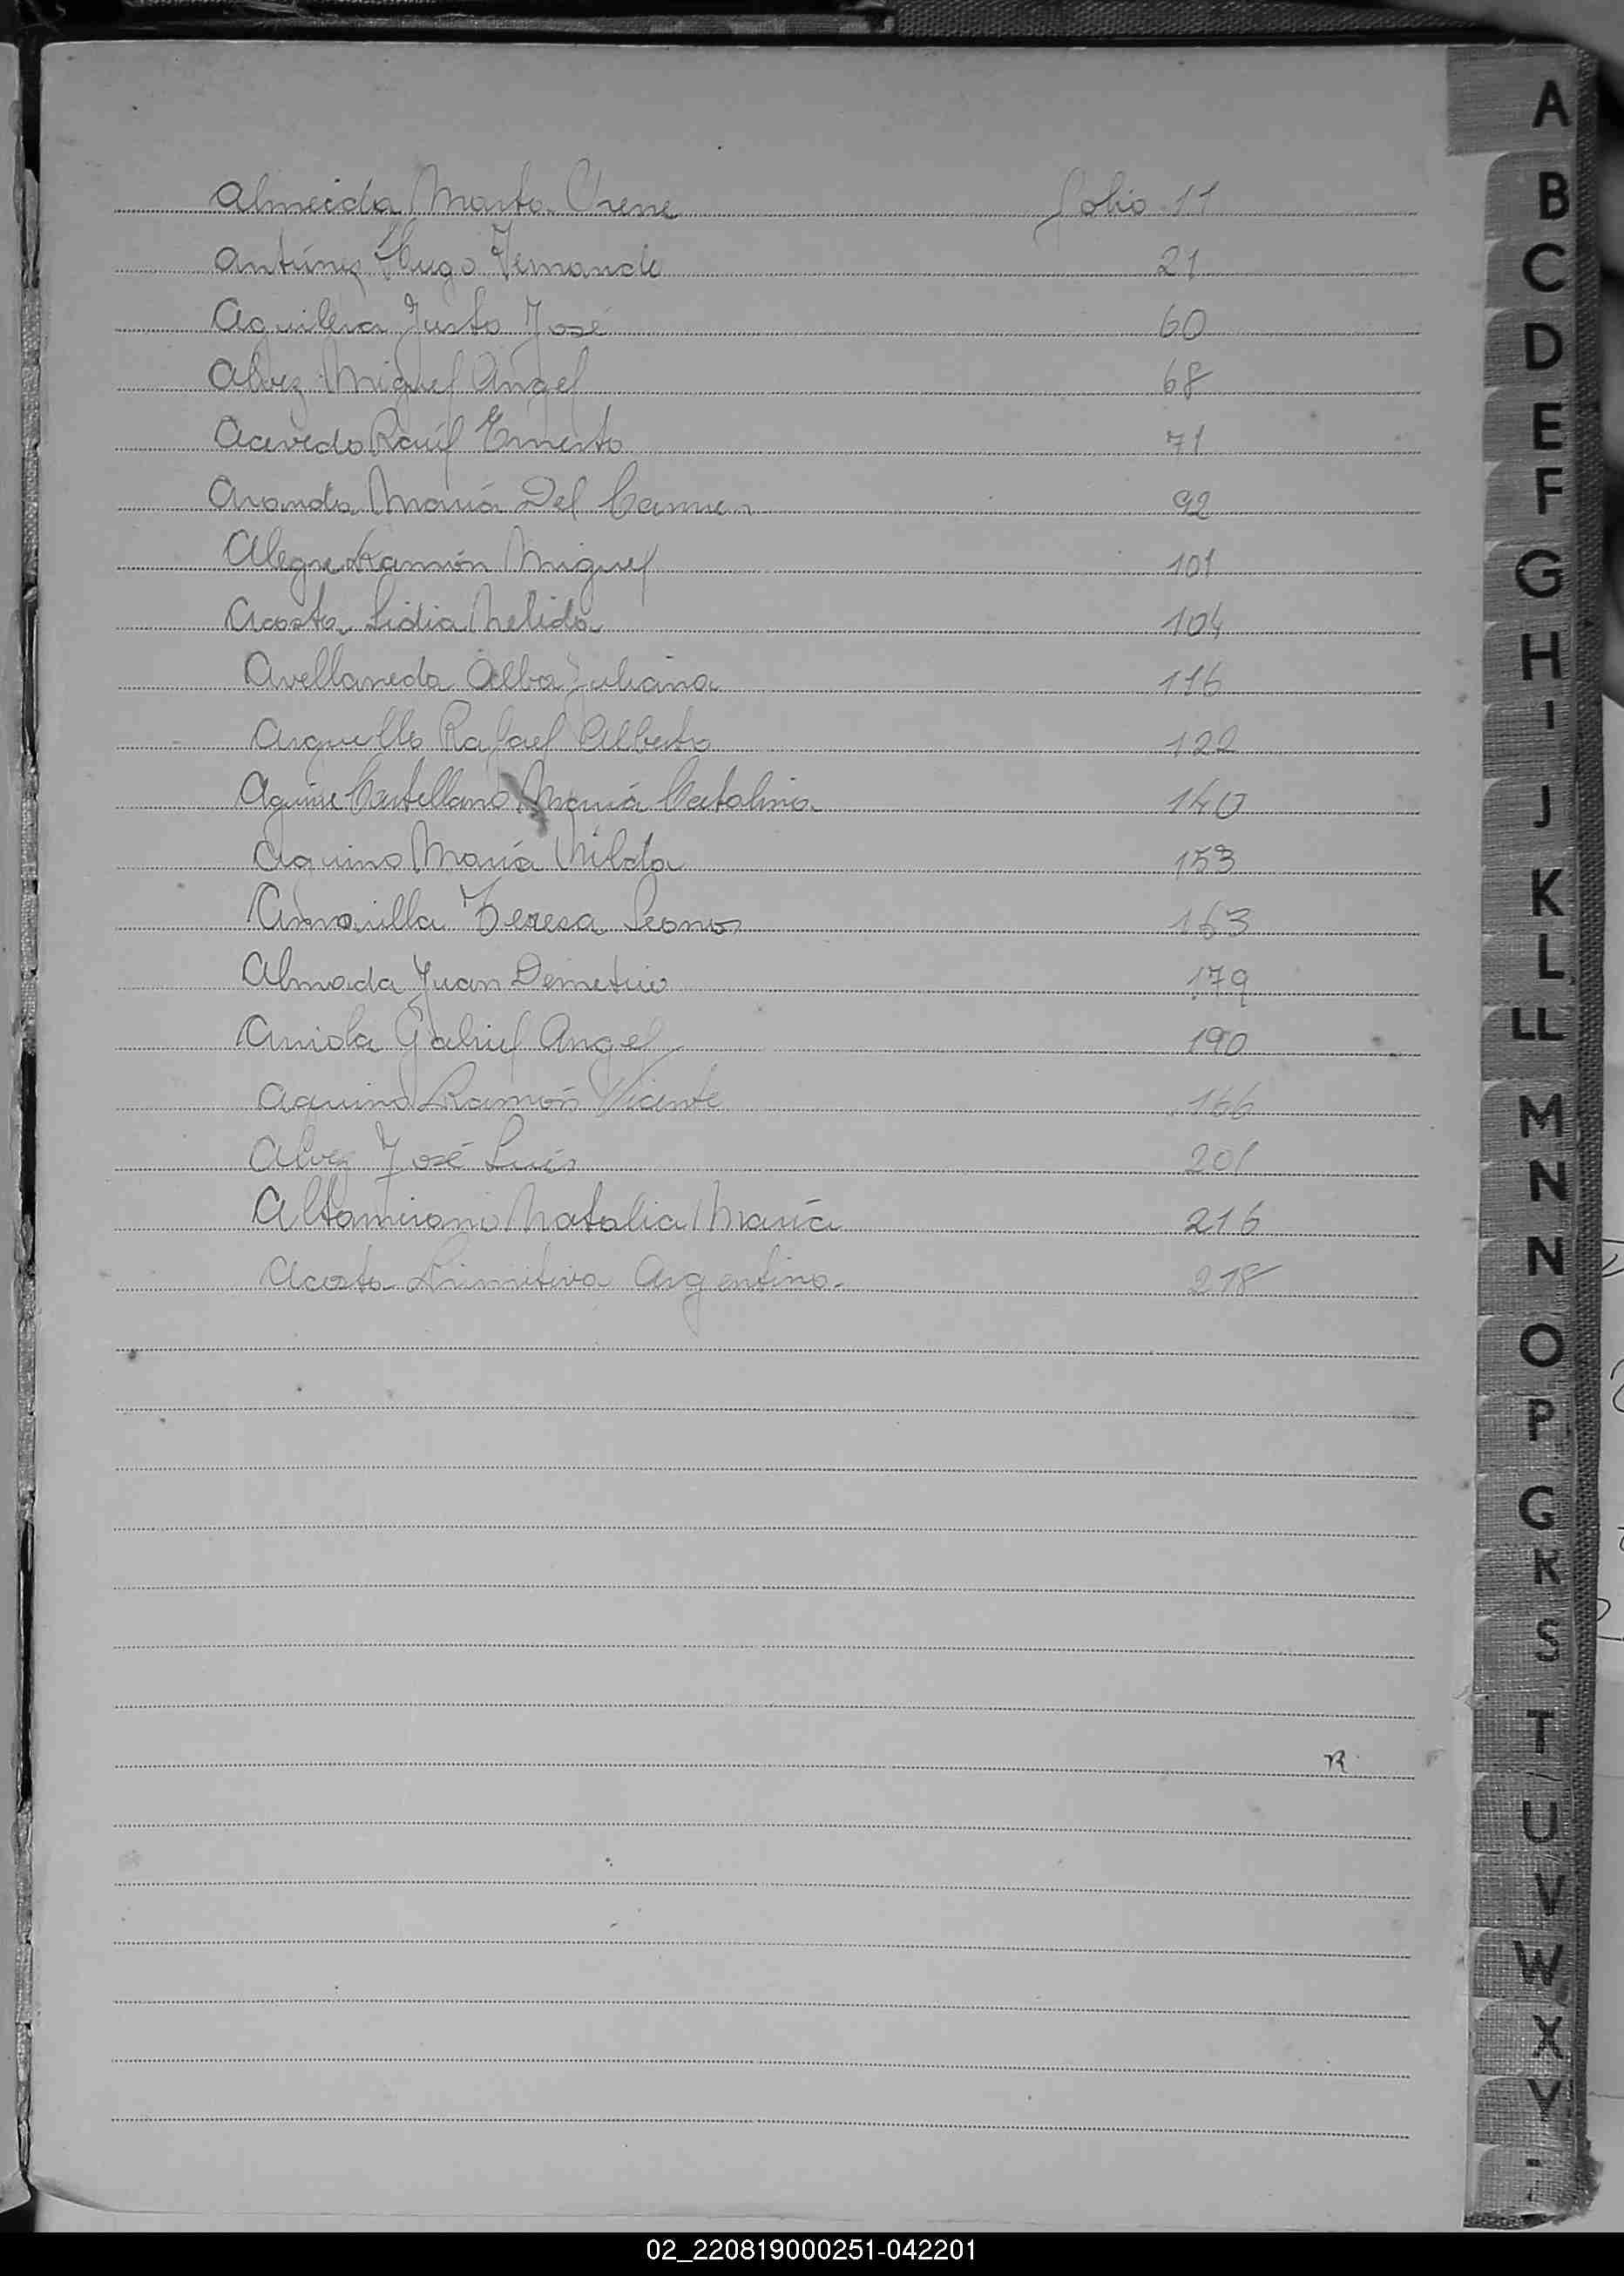 Almeida Marta Irene folio 11
Antúnez Hugo Fernando 21
Aguilera Justo José 60
Alvez Miguel Angel 68
Acevedo Raúl Ernesto 71
Aranda María Del Carmen 92
Alegre Ramón Miguel 101
Acosta Lidia Nelida 104
Avellaneda Alba Juliana 116
Arguello Rafael Alberto 122
Aguirre Castellano María Catalina 140
Aquino María Nilda 153
Amarilla Teresa Leonor 163
Almada Juan Demetrio 179
Arriola Gabriel Angel 190
Aquino Ramón Vicente 166
Alvez José Luis 201
Altamirano Natalia María 216
Acosta Primitiva Argentina 218
A
B
C
D
E
F
G
H
I
J
K
L
LL
M
N
N
O
P
R
S
T
U
V
W
X
Y
02_220819000251-042201